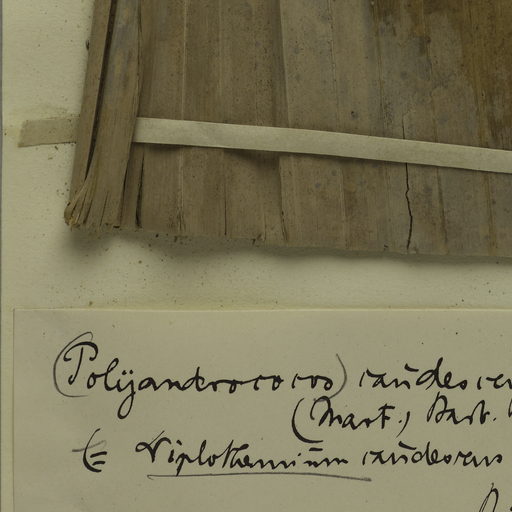 (Polyandrococos) caudescen
(Mart.) Barb.
(= Diplothemium caudescens